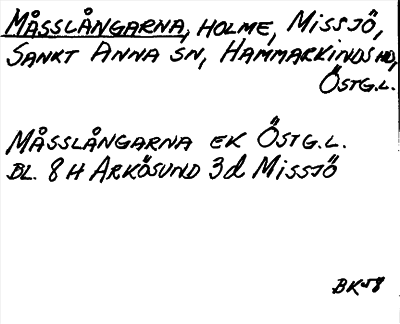 MÅSSLÅNGARNA, HOLME, MISSJÖ,
SANKT ANNA SN, HAMMARKINDS HD,
ÖSTG.L.
MÅSSLÅNGARNA EK ÖSTG.L.
BL. 8 H ARKÖSUND 3d MISSJÖ
BK58